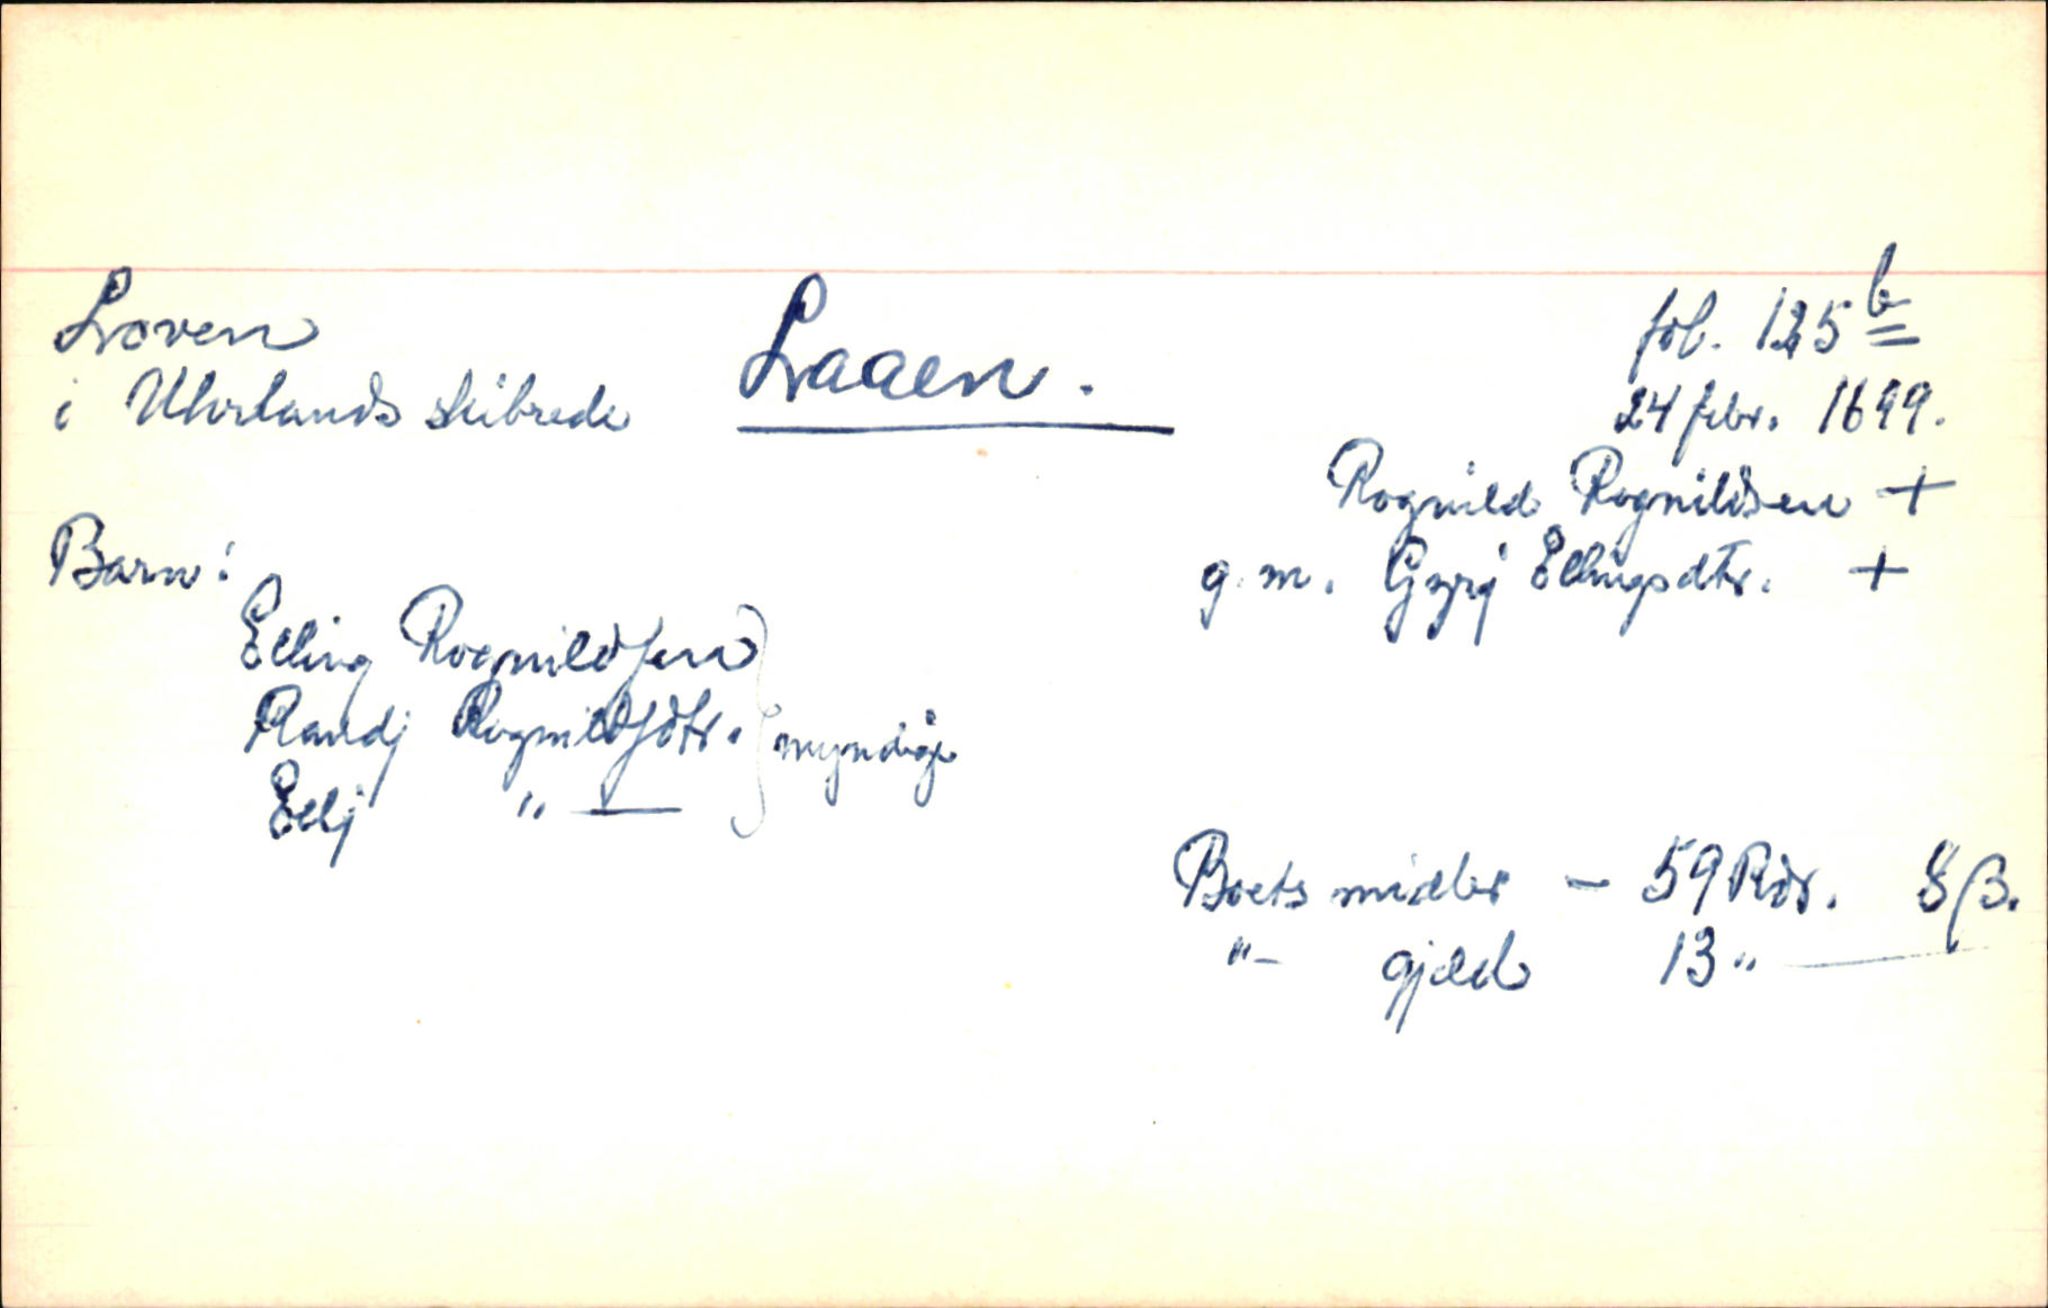 Loven
i Uhrlands skibrede
Laaen.
fol. 125 b
24 febr. 1699.
Rognild Rognildsen +
g. m. Gyrj Ellingsdtr. +
Barn:
Elling Rognildsen
Randj Rognildsdtr. } myndige
Ellj " —
Boets midler - 59 Rdr. 8 β.
"- gjæld 13 " —